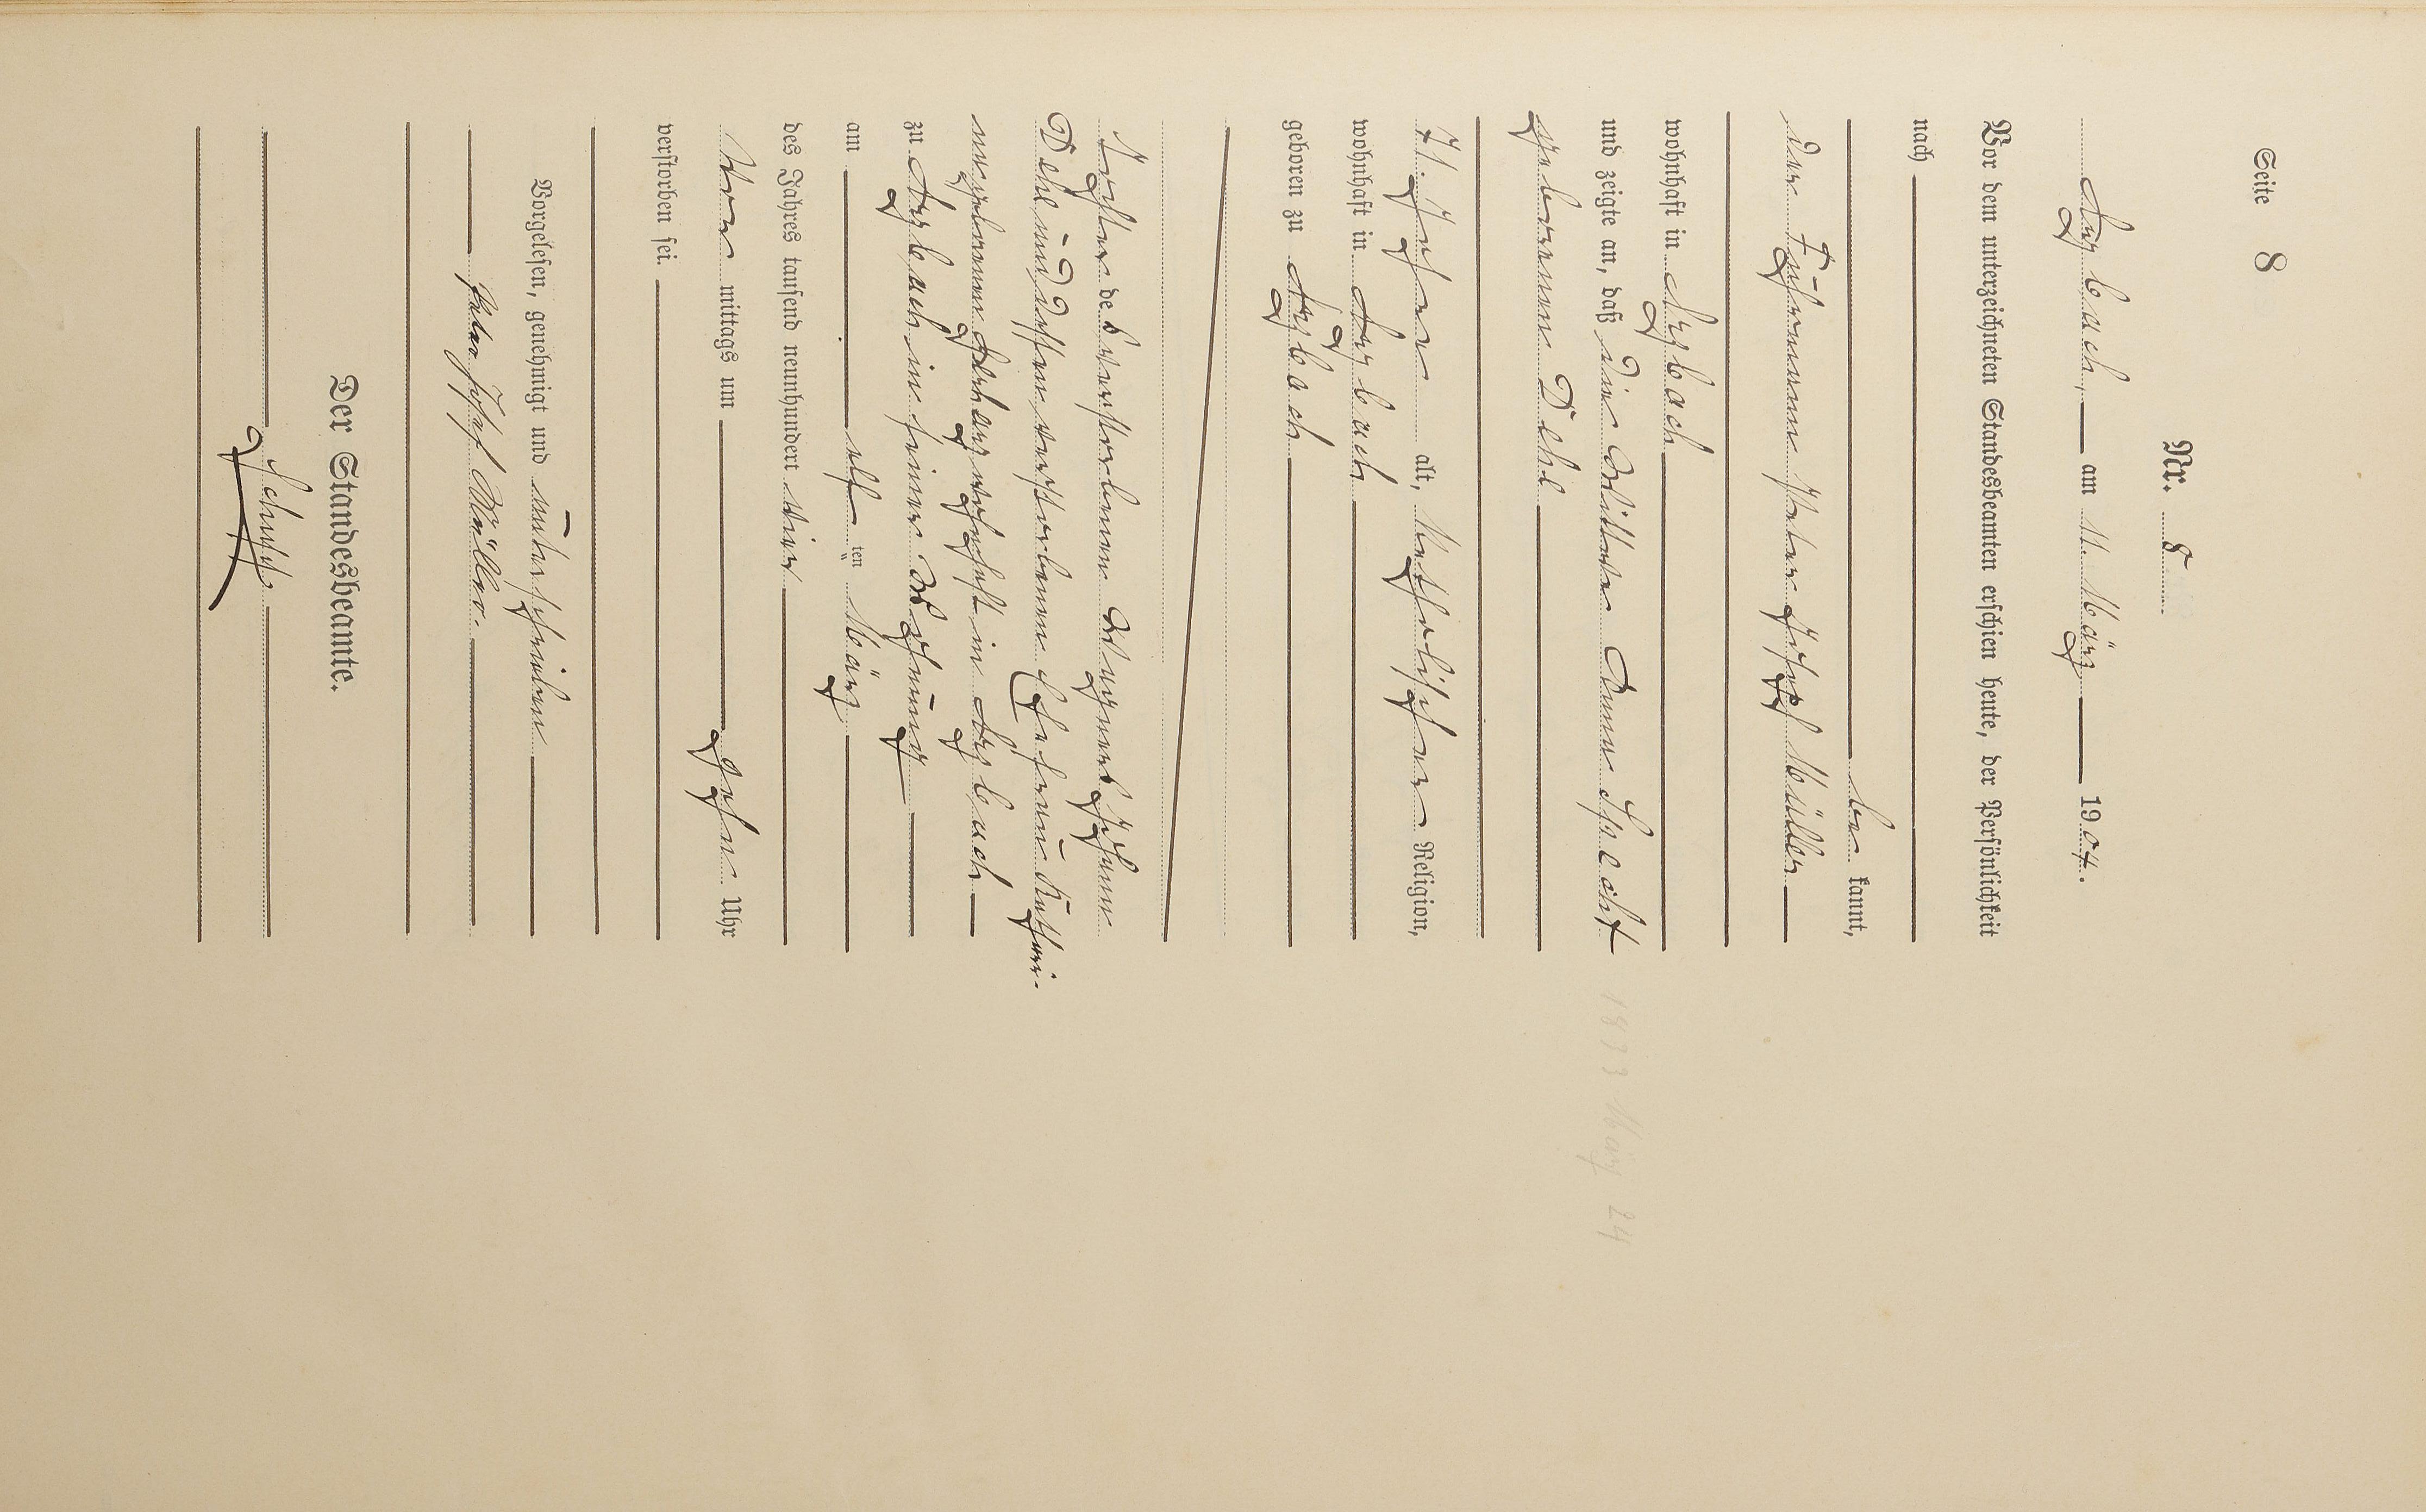 Seite 8
Nr. 8
Arzbach, am 11. März 1904.
Vor dem unterzeichneten Standesbeamten erschien heute, der Persönlichkeit
nach
be kannt,
der Fuhrmann Peter Josef Müller
wohnhaft in Arzbach
und zeigte an, daß die Wittwe Anna Specht
geborene Dehl
71. Jahre alt, katholischer Religion,
wohnhaft in Arzbach
geboren zu Arzbach
1833 März 24
Tochter des verstorbenen Wagners Johann
Dehl und dessen verstorbenen Ehefrau Kathari-
na, geborenen wohnhaft in Arzbach
zu Arzbach in seiner Wohnung
am elf ten März
des Jahres tausend neunhundert vier
Vor mittags um zehn Uhr
verstorben sei.
Vorgelesen, genehmigt und unterschrieben
Peter Josef Müller.
Der Standesbeamte.